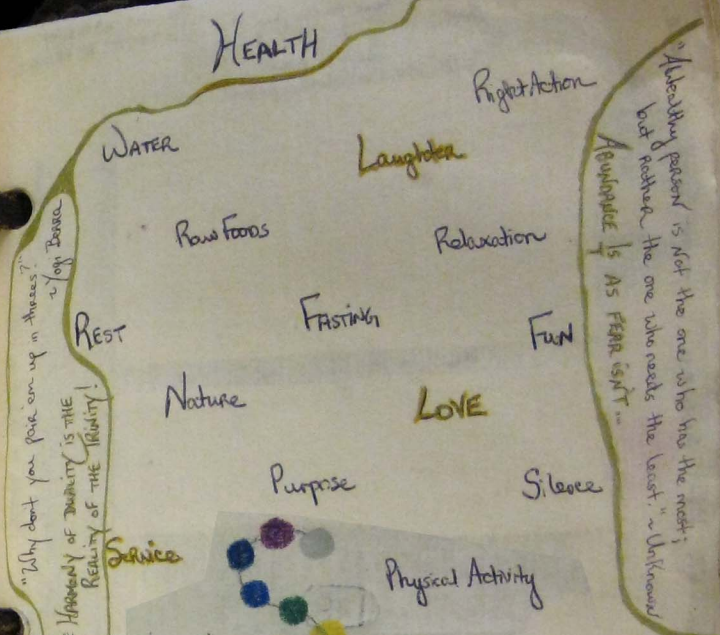 HEALTH
Right Action
WATER
Laughter
Raw Foods
Relaxation
FASTING
REST
FUN
Nature
LOVE
Purpose
Silence
Service
Physical Activity
"Why don't you pair 'em up in threes?"
~Yogi Berra
HARMONY OF DUALITY IS THE
REALITY OF THE TRINITY!
"A wealthy person is not the one who has the most;
but rather the one who needs the least." ~Unknown
ABUNDANCE IS AS FEAR ISN'T...